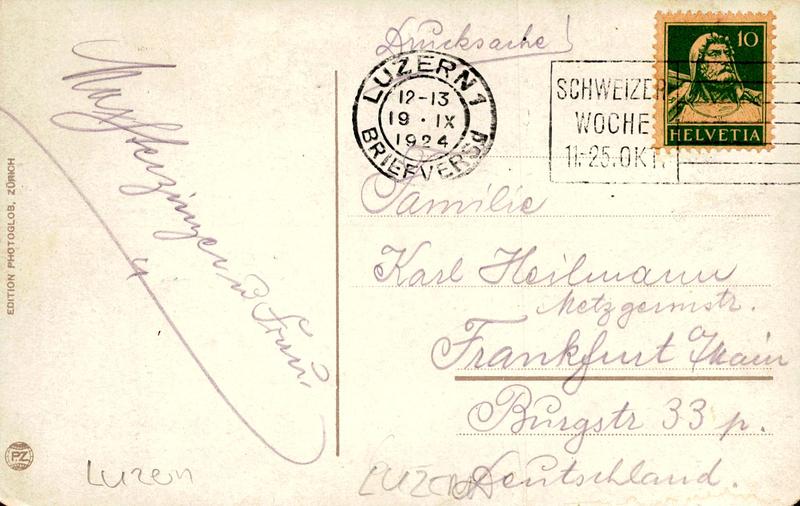 Drucksache!
LUZERN 1
12-13
19 · IX
1924
BRIEFVERSD
SCHWEIZER
WOCHE
11.-25. OKT.
10
HELVETIA
Familie
Karl Heilmann
Metzgermstr.
Frankfurt a/Main
Burgstr 33 p.
Deutschland.
u Frau
EDITION PHOTOGLOB, ZÜRICH
PZ
Luzern
LUZERN